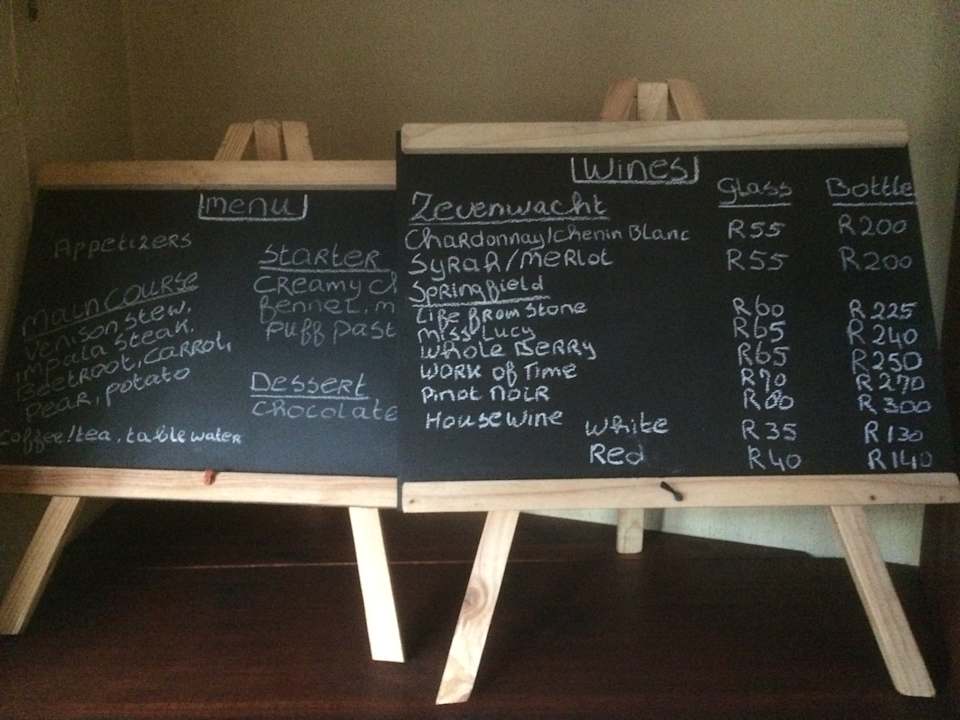 menu
Appetizers
Main Course
Venison stew,
impala steak.
Beetroot, carrot,
pear, potato
Coffee/tea, table water
Starter
Creamy
fennel,
Puff
Dessert
Chocolate
Wines
Glass Bottle
Zevenwacht
Chardonnay/Chenin Blanc R55 R200
Syrah/Merlot R55 R200
Springfield
Life from Stone R60 R225
Miss Lucy R65 R240
Whole Berry R65 R250
Work of Time R70 R270
Pinot Noir R80 R300
House wine White R35 R130
Red R40 R140